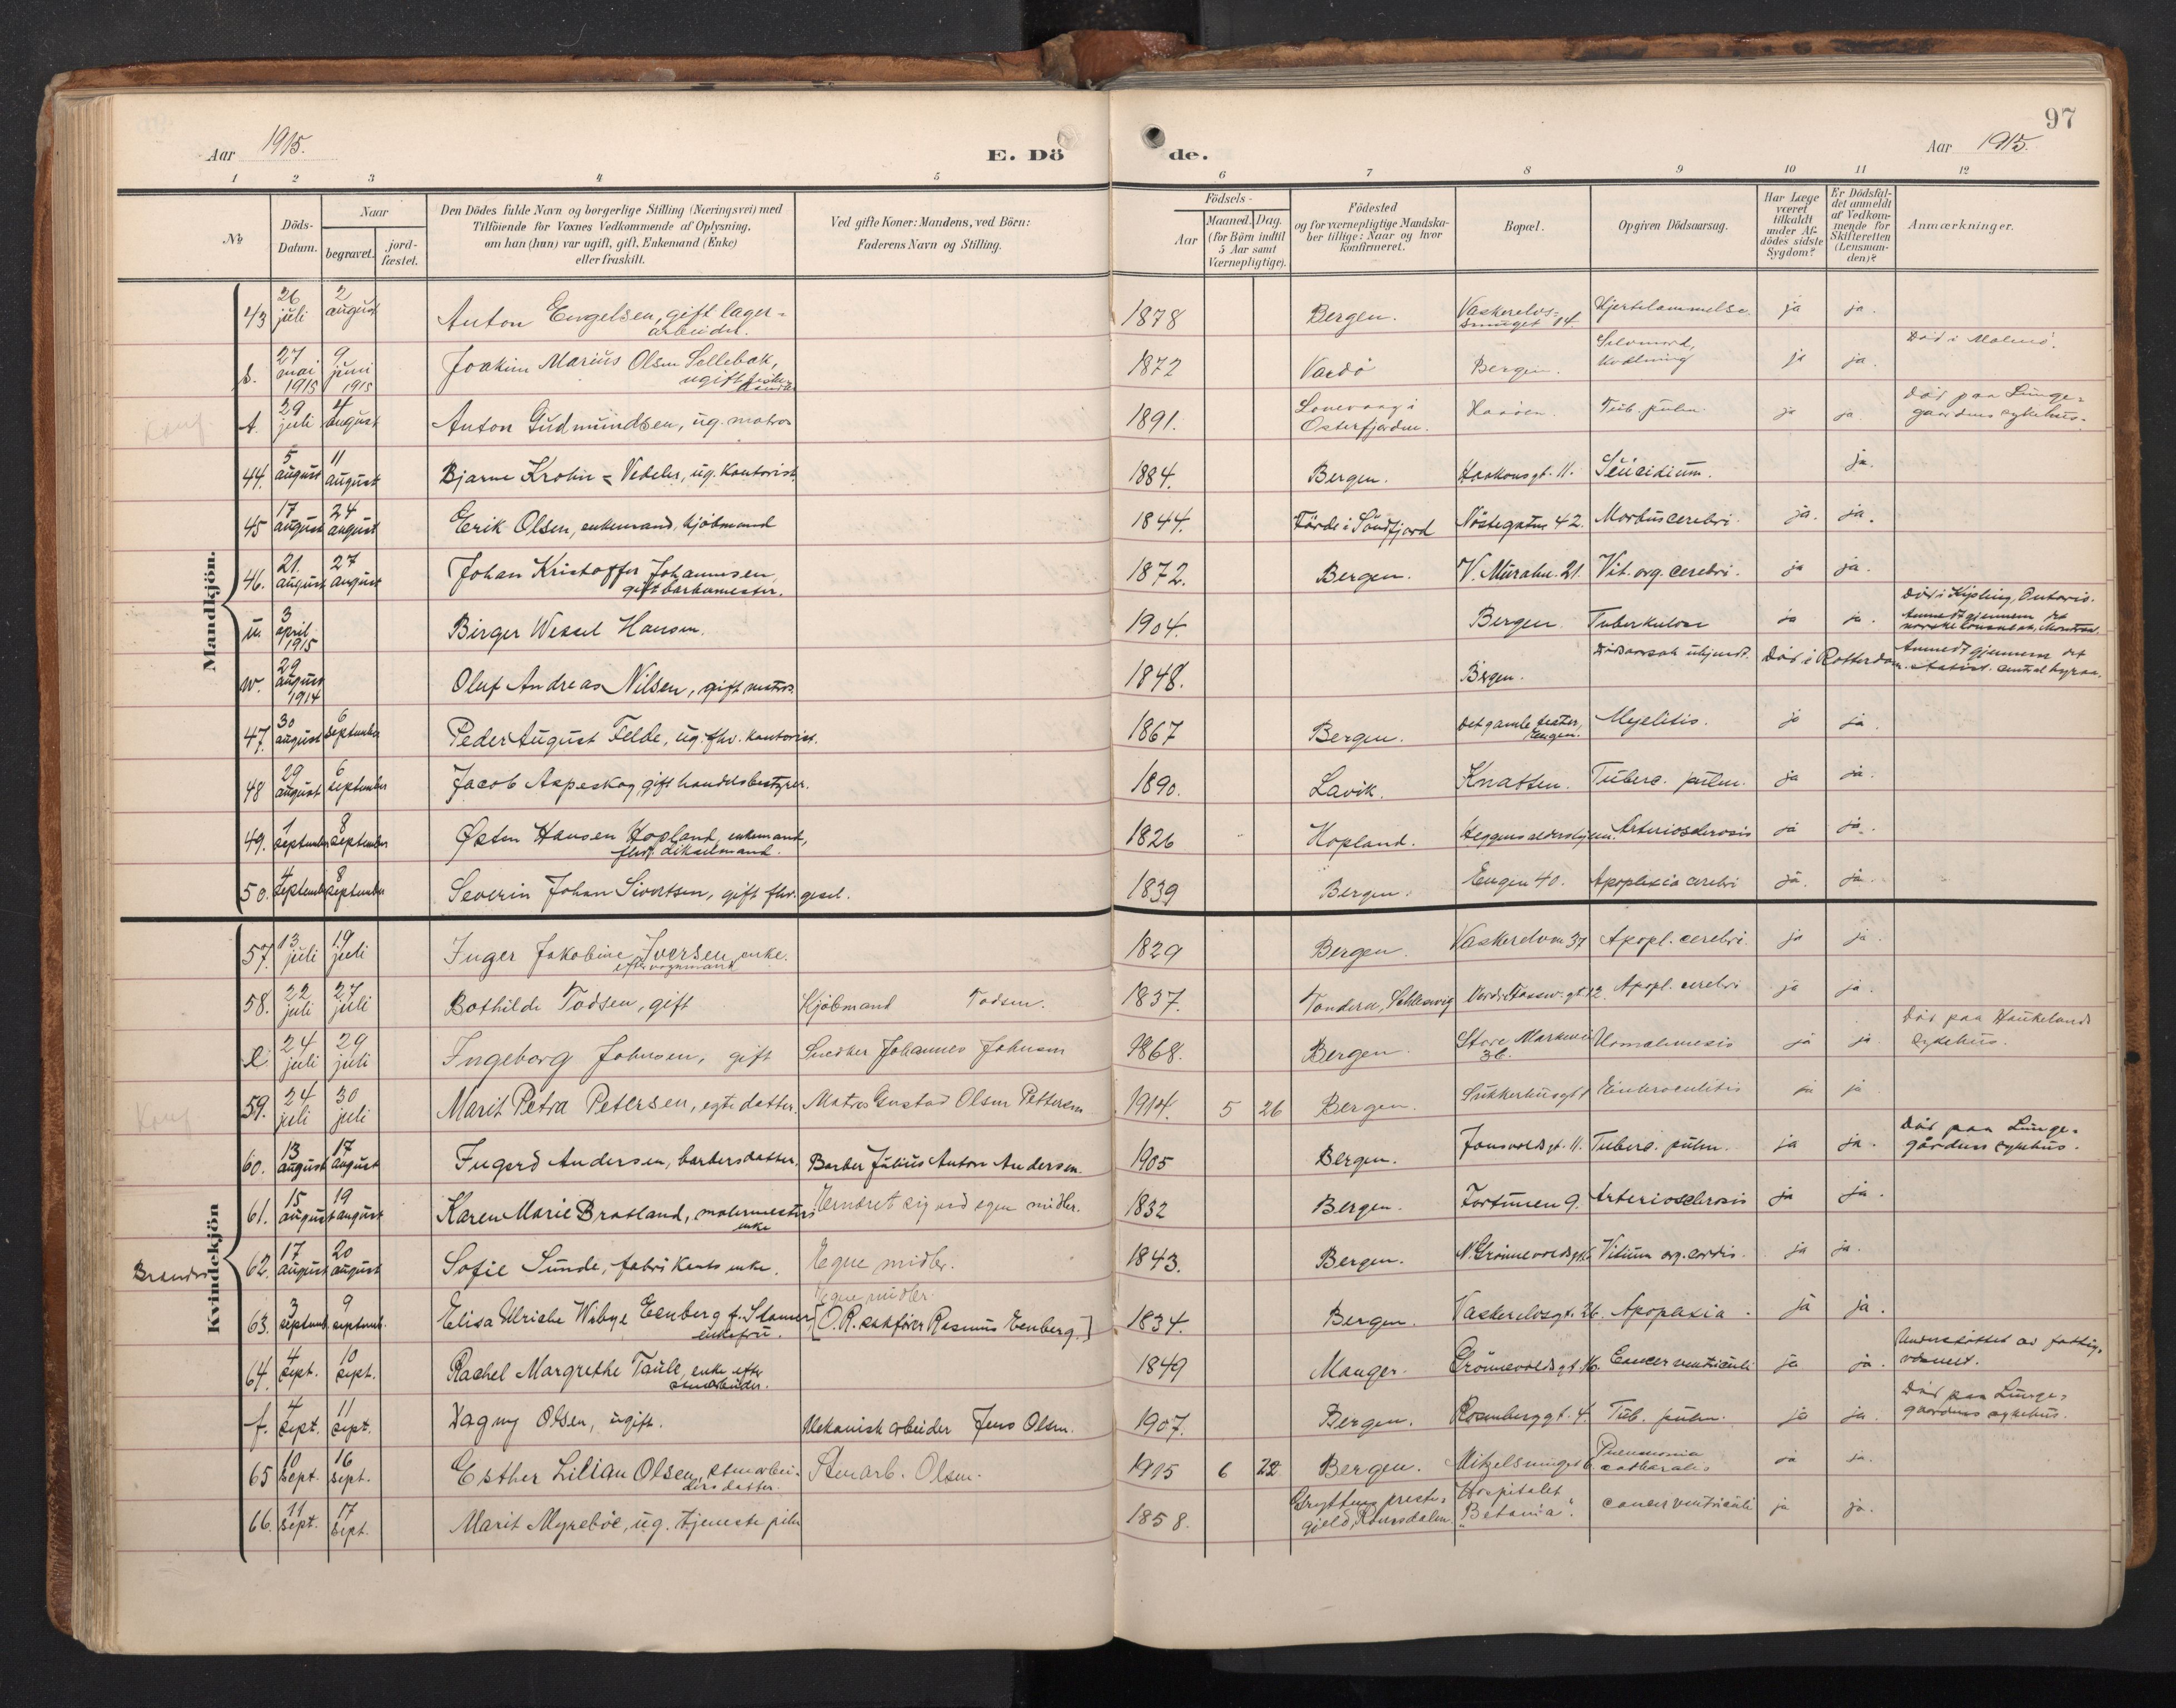 97
Aar 1915.
E. Döde.
Aar 1915.
1 2 3 4 5 6 7 8 9 10 11 12
No
Döds-Datum.
Naar
begravet.
jord-fæstet.
Den Dödes fulde Navn og borgerlige Stilling (Næringsvei) med
Tilföiende for Voxnes Vedkommende af Oplysning,
om han (hun) var ugift, gift, Enkemand (Enke)
eller fraskilt.
Ved gifte Koner: Mandens, ved Börn:
Faderens Navn og Stilling.
Födsels-
Aar
Maaned. Dag.
(for Börn indtil
5 Aar samt
Værnepligtige).
Födested
og for værnepligtige Mandska-
ber tillige: Naar og hvor
konfirmeret.
Bopæl.
Opgiven Dödsaarsag.
Har Læge
været
tilkaldt
under Af-
dödes sidste
Sygdom?
Er Dödsfal-
det anmeldt
af Vedkom-
mende for
Skifteretten
(Lensman-
den)?
Anmærkninger.
Mandkjön.
43 26 juli 2 august Anton Engelsen, gift lager-arbeider. 1878 Bergen. Vaskerelvs-smuget 14 Hjertelammelse. ja ja.
s. 27 mai 1915 9 juni 1915 Joakim Marius Olsen Sellebak, ugift 1872 Vardö Bergen. Selvmord, ja ja. Död i Malmö.
t. 29 juli 4 august Anton Gudmundsen, ug. matros 1891. i Osterfjorden. Tub. pulm. ja ja Död paa Lunge-gaardens sykehus.
44. 5 august 11 august Bjarne Krohn = Vedeler, ug. kontorist. 1884. Bergen. Haakonsgt. 11. Suicidium. ja.
45 17 august 24 august Erik Olsen, enkemand, kjöbmand 1844. Förde i Söndfjord Nöstegaten 42. Morbus cerebri. ja. ja.
46. 21. august 27 august Johan Kristoffer Johannesen, gift barbermester. 1872. Bergen. V. Muralm. 21. Vit. org. cerebri. ja ja.
u. 3 april 1915 Birger Wessel Hansen. 1904. Bergen. Tuberkulose ja ja. Död i Kipling, Ontario. Anmeldt gjennem det norske konsulat, Montreal.
w. 29 august 1914 Oluf Andreas Nilsen, gift matros. 1848. Bergen. Dödsaarsak ukjendt. Död i Rotterdam. Anmeldt gjennem det statist. centralbyraa.
47. 30 august 6 september Peder August Felde, ug. fhv. kontorist. 1867 Bergen. Det gamle teater, Engen. Myelitis. ja ja.
48 29 august 6 september Jacob Aspeskog, gift handelsbestyrer. 1890. Lavik. Knatten. Tuberc. pulm. ja ja.
49. 1 september 8 september Östen Hansen Hopland, enkemand, 1826 Hopland. Heggens aldershjem. Arteriosclerosis ja ja.
50. 4 september 8 september Severin Johan Sivertsen, gift fhv. gesel. 1839 Bergen. Engen 40. Apoplexia cerebri ja. ja.
Kvindekjön
57. 13 juli 19 juli Inger Jakobine Iversen, enke efter vognmand 1829 Bergen. Vaskerelven 37 Apopl. cerebri. ja ja.
58. 22 juli 27 juli Bothilde Todsen, gift Kjöbmand Todsen. 1837. Tondern, Schleswig 12 Apopl. cerebri ja ja.
e. 24 juli 29 juli Ingeborg Johnsen, gift Snedker Johannes Johnsen 1868. Bergen. Store Markevei 36. ja ja. Död paa Haukelands sykehus.
Konf 59. 24 juli 30 juli Marit Petra Petersen, egte datter. Matros Gustav Olsen Pettersen 1914. 5 26 Bergen. Sukkerhusgt. Enterocolitis ja ja
60. 13 august 17 august Ingerd Andersen, barbersdatter. Barber Julius Anton Andersen. 1905 Bergen. Jonsvoldsgt. 11. Tuberc. pulm. ja ja. Död paa Lunge-gårdens sykehus.
61. 15 august 19 august Karen Marie Bratland, malermesters enke Ernæret sig ved egne midler. 1832 Bergen. Fortunen 9. Arteriosclerosis ja ja.
62. 17 august 20 august Sofie Sunde, fabrikants enke. Egne midler. 1843. Bergen. N. Grönnevoldsgt. 6 Vitium org. cordis. ja ja.
63. 3 septemb. 9 septemb. Elisa Ulrikke Wibye Eenberg f. Stamer, enkefru. Egne midler. [O.R. sakförer Rasmus Eenberg.] 1834. Bergen. Vaskerelvsgt. 26. Apoplexia. ja ja.
64. 4 sept. 10 sept. Rachel Margrethe Taule, enke efter stenarbeider. 1849 Manger. Grönnevoldsgt. 16. Cancer ventriculi ja ja. Understöttet av fattig-væsenet.
f. 4 sept. 11 sept. Dagny Olsen, ugift. Mekanisk arbeider Jens Olsen. 1907. Bergen. Rosenberggt. 4. Tub. pulm. ja ja. Död paa Lunge-gaardens sykehus.
65 10 sept. 16 sept. Esther Lilian Olsen, stenarbei-ders datter. Stenarb. Olsen. 1915 6 22 Bergen. Mitzelsmuget 6. Pneumonia catharalis ja ja.
66. 11 sept. 17 sept. Marit Myreböe, ug. tjenestepike 1858. Gryttens preste-gjeld, Romsdalen. Hospitalet "Betania". cancer ventriculi ja ja.